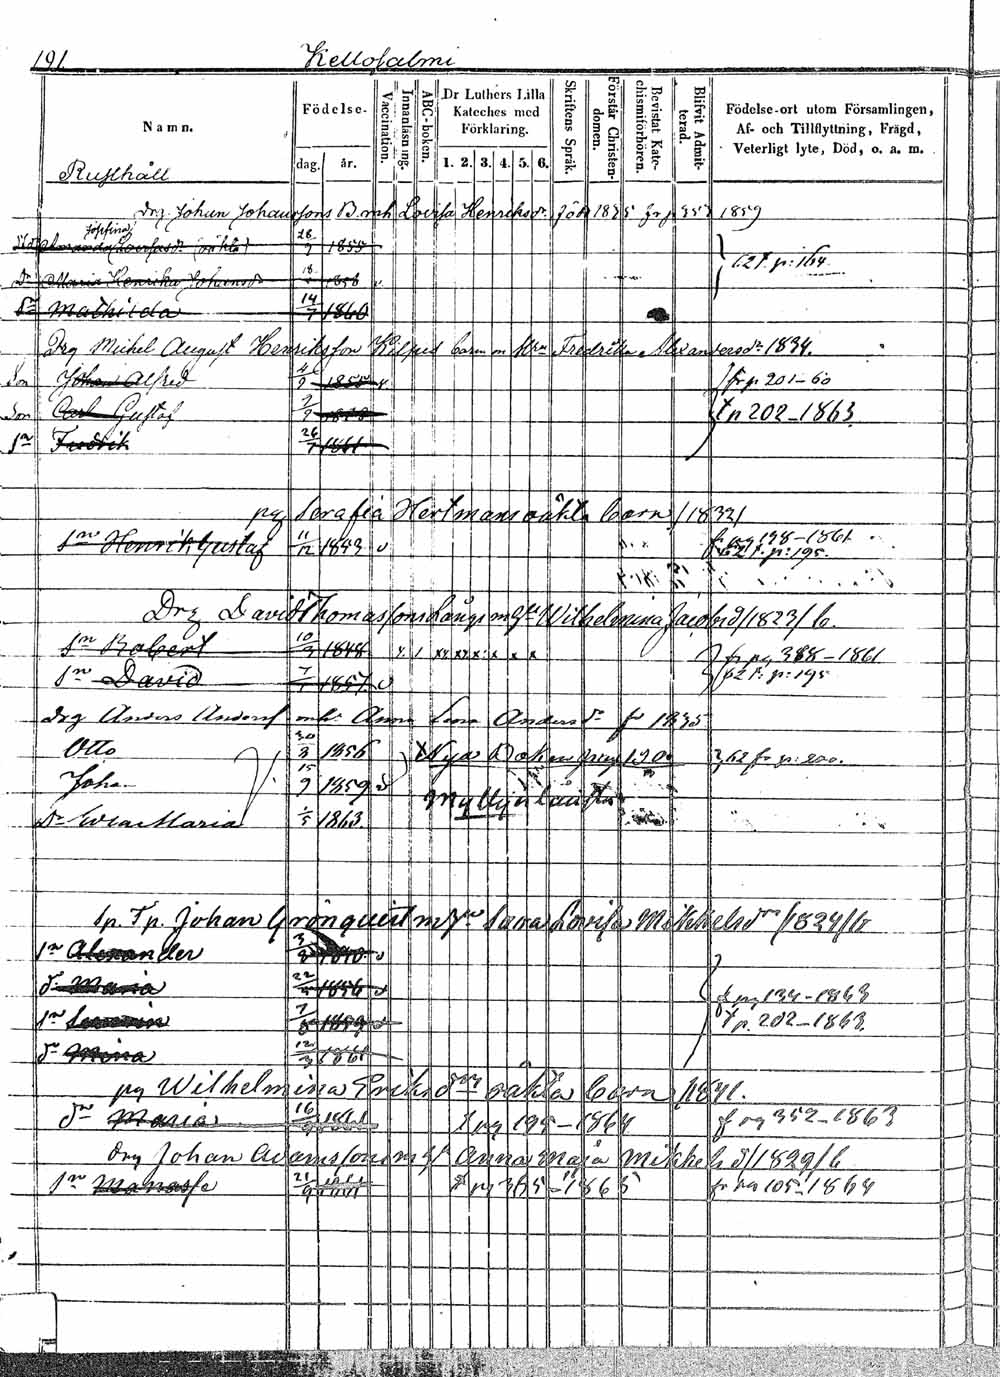 191. Kellosalmi
Namn.
Födelse-
dag. år.
Vaccination.
Innanläsning.
ABC-boken.
Dr Luthers Lilla
Kateches med
Förklaring.
1. 2. 3. 4. 5. 6.
Skriftens Språk.
Förstår Christen-
domen.
Bevistat Kate-
chismiförhören.
Blifvit Admit-
terad.
Födelse-ort utom Församlingen,
Af- och Tillflyttning, Frägd,
Veterligt lyte, Död, o. a. m.
Rusthåll
Drg. Johan Johanssons B. mh Lovisa Henriksdr född 1835 1859
Josefina
oäkta 28/9 1855
62 t. p: 164.
dr Maria Henrika Johansdr 18 1858
dr Mathilda 14/7 1860
Drg Michel August Henriksson barn m Hu Fredrika Alexandersdr 1834.
Son Johan Alfred 4/9 1855 fr p 201-60
Son Carl Gustaf 2 t p 202-1863.
Sn Fredrik 26/7 1861
pig Serafia Hertmans oäkta barn /1832/
Sn Henrik Gustaf 11/12 1853 f. pg 198-1861
62 t. p: 195.
Drg David Thomasson Långs m hu Wilhelmina Jacobsd /1823/ b.
Sn Robert 10/3 1848 x 1 xx xx x: x x x fr pg 388-1861
Sn David 7 1857 62 t. p: 195
Drg Anders Anderss mh. Anna Leena Andersdr f 1835
Otto 30/3 1856 Nya Boken pag 190 62 fr p: 200.
Johan 15/9 1859
Myllyn
Dr Eva Maria 1/5 1863.
Sp. Tp. Johan Grönqvist m hu Sara Lovisa Mikkelsdr /1824/ b
Sn Alexander 3/8
dr Maria 22 1856 f pg 134-1863
Sn Severin 7/8 1859 t p. 202-1863.
dr Mina 12/3 1861
pig Wilhelmina Eriksdrs oäkta barn /1841.
dr Maria 16/9 1861 t pg 195-1864 f pg 352-1863
Drg Johan Adamsson m hu Anna Maja Mikkelsd /1829/ b
Sn Manasse 21/9 1861 t pg 365-1865 fr pag 105-1864